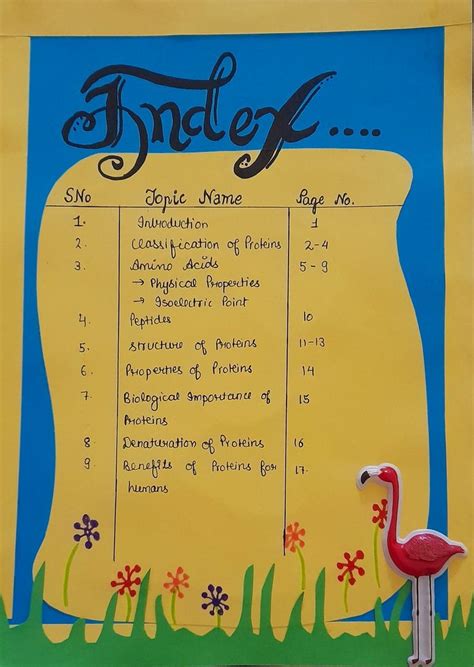 Index....
SNo Topic Name Page No.
1. Introduction 1
2. Classification of Proteins 2-4
3. Amino Acids 5-9
→ Physical Properties
→ Isoelectric Point
4. Peptides 10
5. Structure of Proteins 11-13
6. Properties of Proteins 14
7. Biological Importance of 15
Proteins
8 Denaturation of Proteins 16
9 Benefits of Proteins for 17.
humans